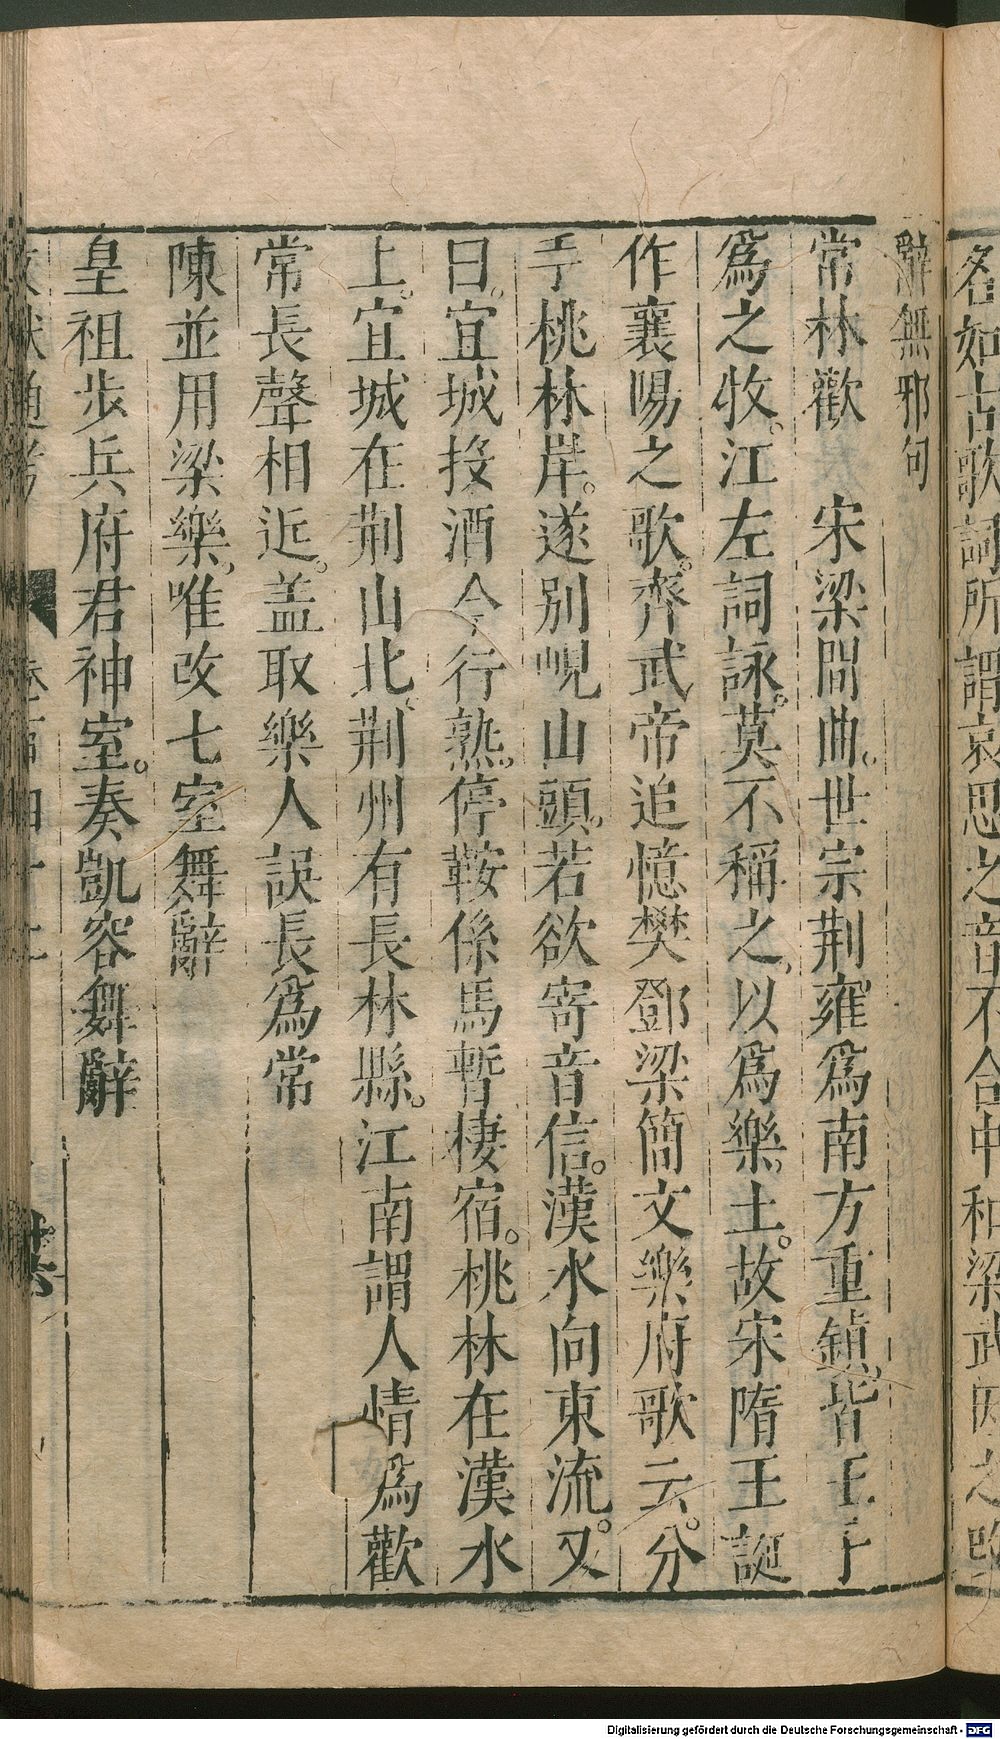 名如古歌詞所謂哀思之音不合中和梁武因之改
辭無邪句
常林歡　宋梁間曲。世宗荆雍爲南方重鎮。皆王子
爲之牧。江左詞詠。莫不稱之。以爲樂土。故宋隋王誕
作襄陽之歌。齊武帝追憶樊鄧。梁簡文樂府歌云。分
手桃林岸。遂别峴山頭。若欲寄音信。漢水向東流。又
曰。宜城投酒今行熟。停鞍係馬暫棲宿。桃林在漢水
上。宜城在荆山北。荆州有長林縣。江南謂人情爲歡
常長聲相近。盖取樂人誤長爲常
陳並用梁樂。唯改七室舞辭
皇祖步兵府君神室。奏凱容舞辭